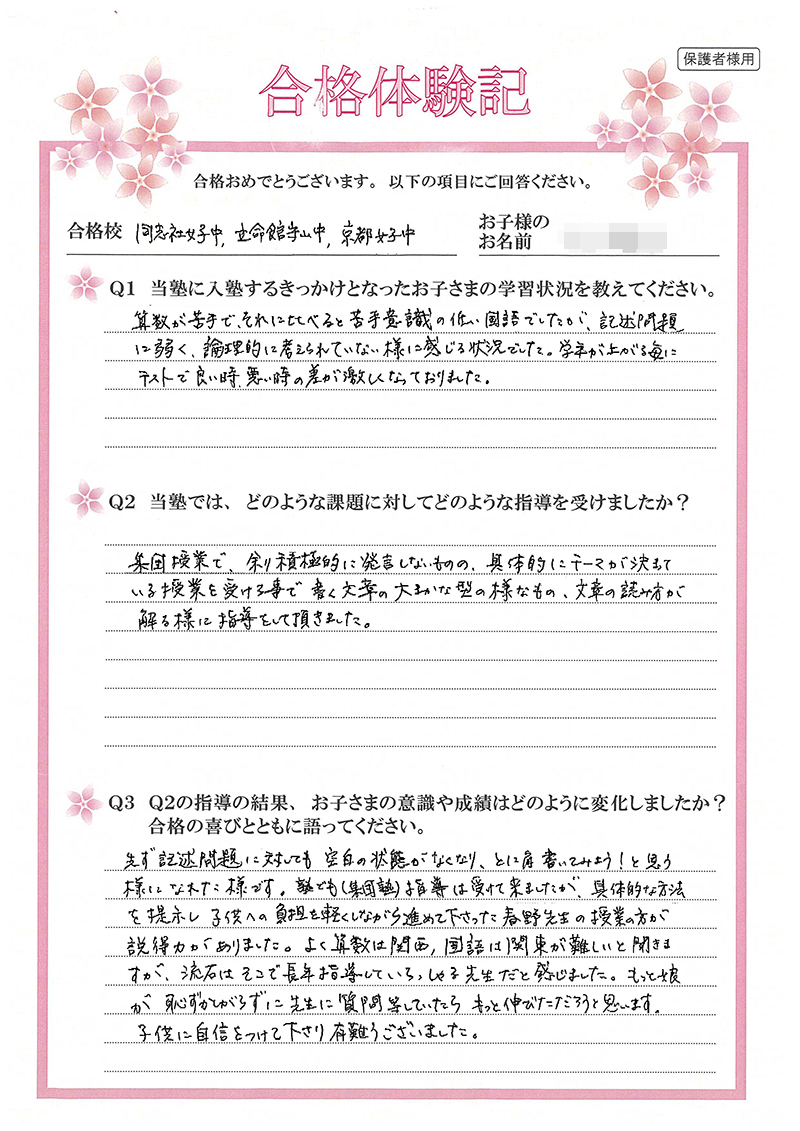 保護者様用
合格体験記
合格おめでとうございます。以下の項目にご回答ください。
合格校 同志社女子中, 立命館守山中, 京都女子中
お子様の
お名前
Q1 当塾に入塾するきっかけとなったお子さまの学習状況を教えてください。
算数が苦手で、それに比べると苦手意識の低い国語でしたが、記述問題
に弱く、論理的に考えられていない様に感じる状況でした。学年が上がる毎に
テストで良い時、悪い時の差が激しくなっておりました。
Q2 当塾では、どのような課題に対してどのような指導を受けましたか？
集団授業で、余り積極的に発言しないものの、具体的にテーマが決まって
いる授業を受ける事で書く文章の大まかな型の様なもの、文章の読み方が
解る様に指導をして頂きました。
Q3 Q2の指導の結果、お子さまの意識や成績はどのように変化しましたか？
合格の喜びとともに語ってください。
先ず記述問題に対しても空白の状態がなくなり、とに角書いてみよう！と思う
様になれた様です。塾でも(集団塾)指導は受けて来ましたが、具体的な方法
を提示し子供への負担を軽くしながら進めて下さった春野先生の授業の方が
説得力がありました。よく算数は関西, 国語は関東が難しいと聞きま
すが、流石はそこで長年指導していらっしゃる先生だと感じました。もっと娘
が恥ずかしがらずに先生に質問等していたらもっと伸びただろうと思います。
子供に自信をつけて下さり有難うございました。